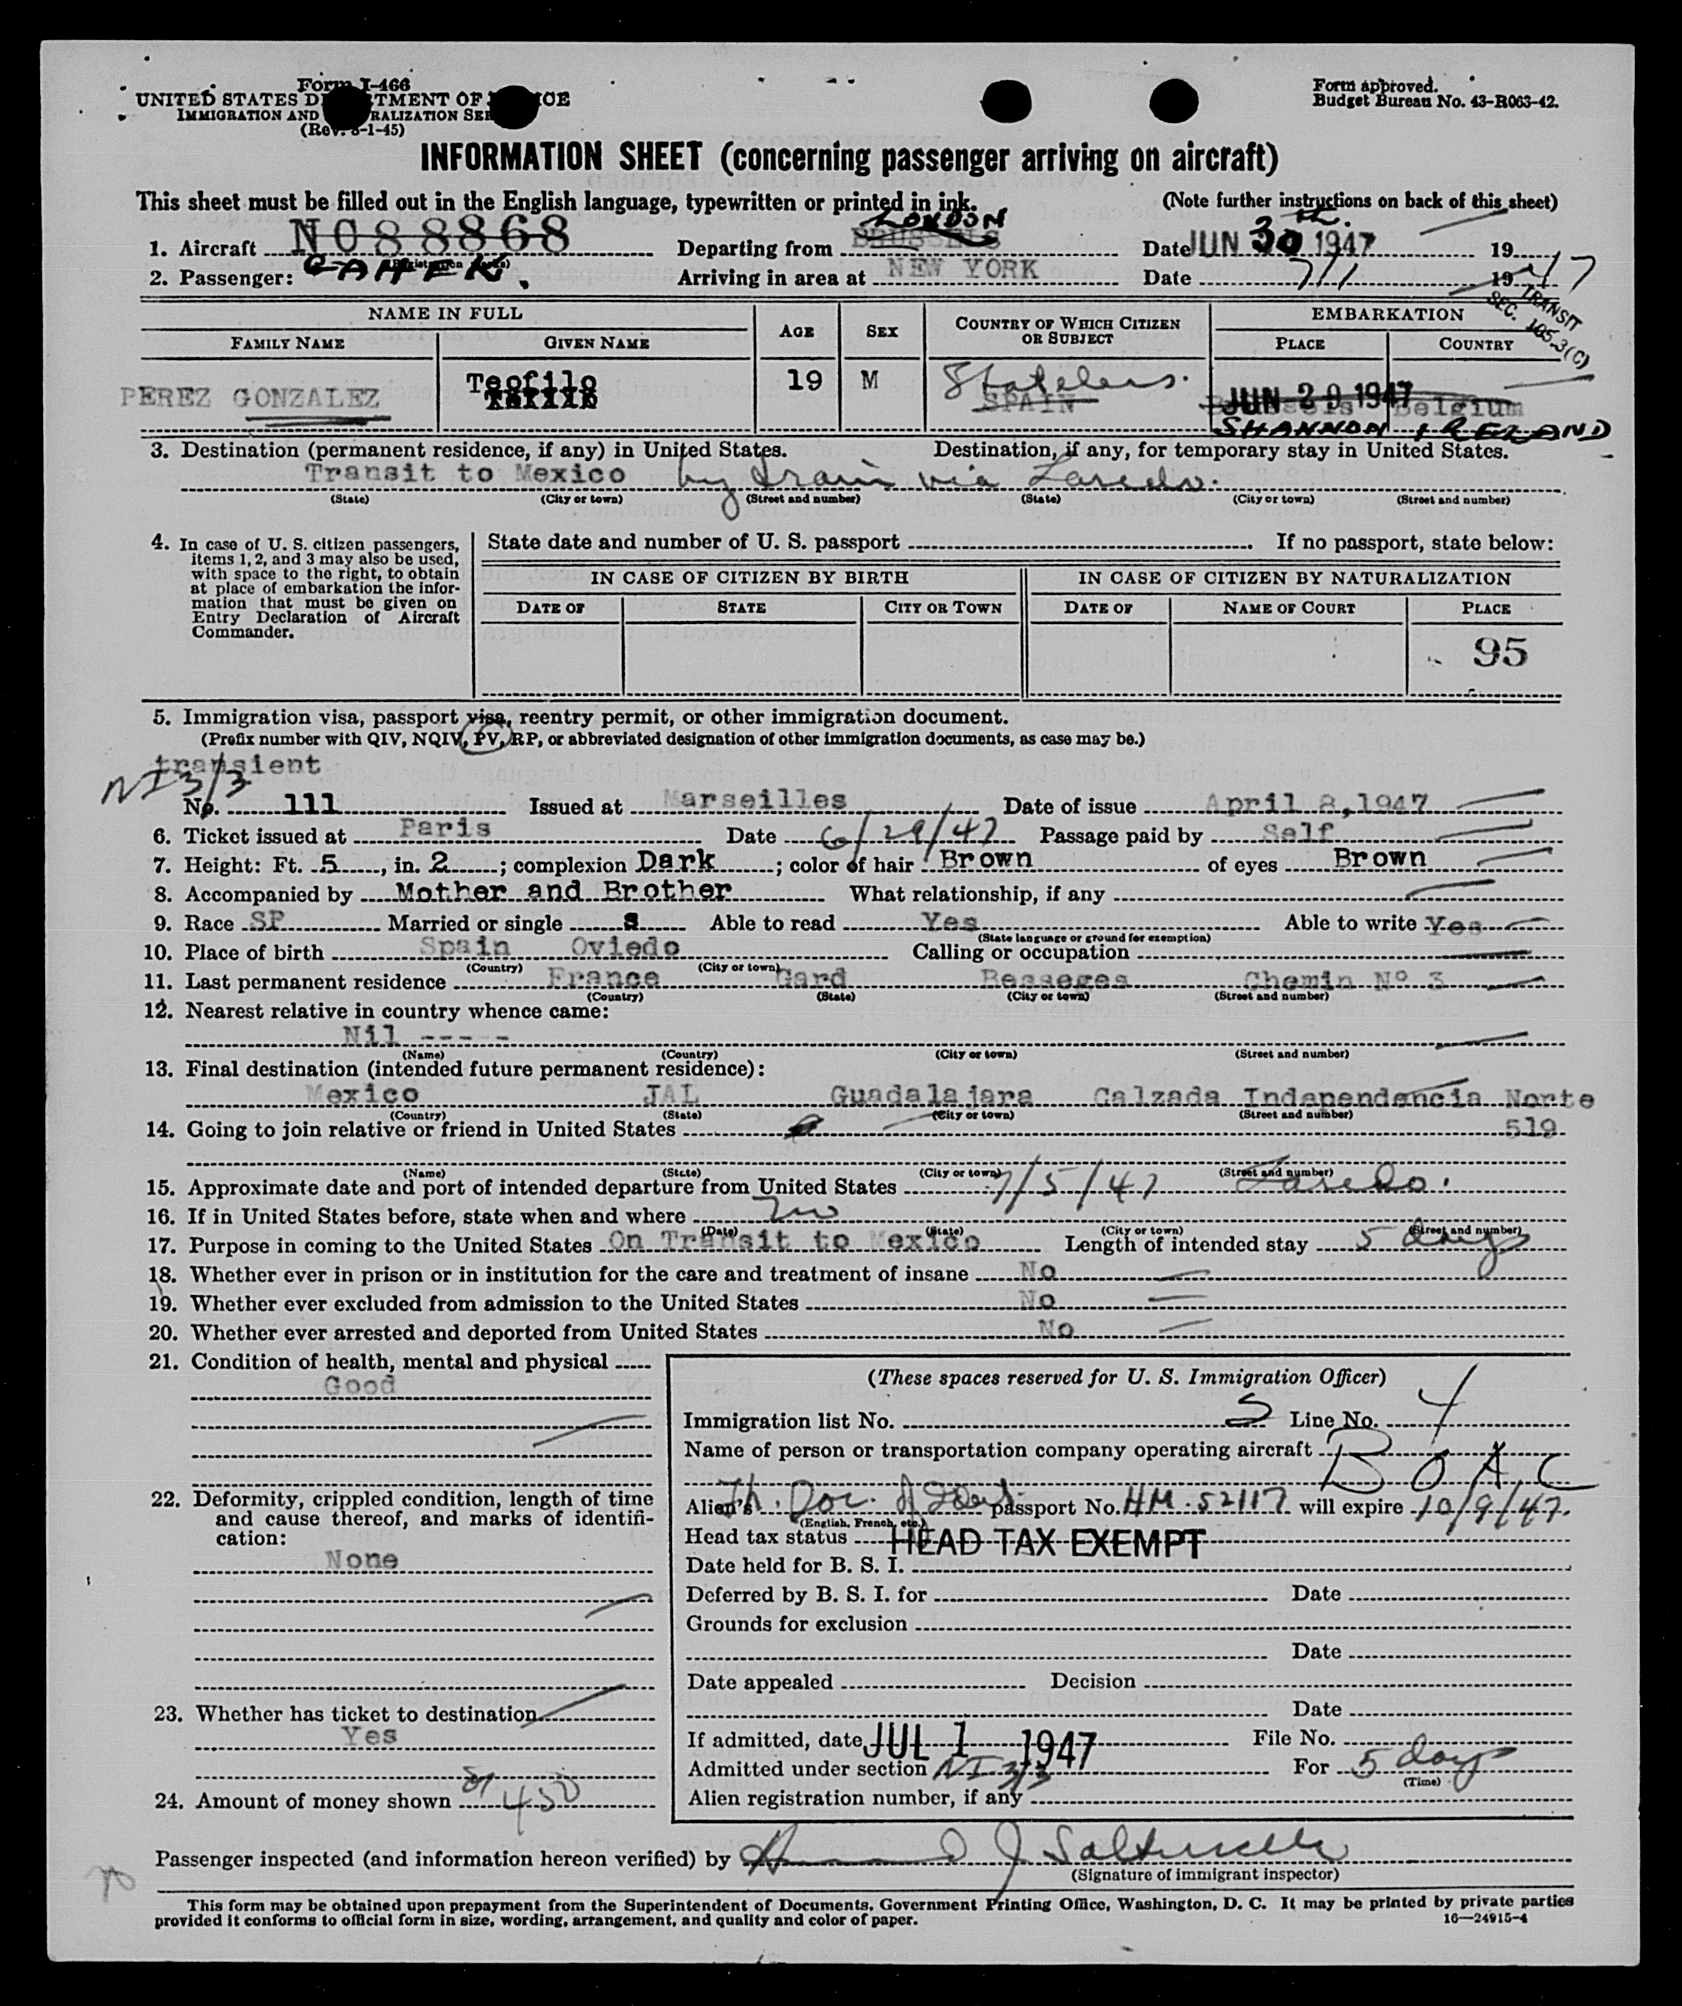 Form I-466
UNITED STATES DEPARTMENT OF JUSTICE
IMMIGRATION AND NATURALIZATION SERVICE
(Rev. 8-1-45)
Form approved.
Budget Bureau No. 43-R063-42.
INFORMATION SHEET (concerning passenger arriving on aircraft)
This sheet must be filled out in the English language, typewritten or printed in ink. (Note further instructions on back of this sheet)
LONDON
1. Aircraft NC88868 Departing from BRUSSELS Date JUN 30th. 1947 19
(Registration mark)
2. Passenger: G-AHEK. Arriving in area at NEW YORK Date 7/1 1947
TRANSIT
SEC. 165.3(C)
NAME IN FULL AGE SEX COUNTRY OF WHICH CITIZEN OR SUBJECT EMBARKATION
FAMILY NAME GIVEN NAME PLACE COUNTRY
PEREZ GONZALEZ Teofilo 19 M Stateless. SPAIN JUN 29 1947 Brussels Belgium
SHANNON IRELAND
3. Destination (permanent residence, if any) in United States. Destination, if any, for temporary stay in United States.
Transit to Mexico by train via Laredo.
(State) (City or town) (Street and number) (State) (City or town) (Street and number)
4. In case of U. S. citizen passengers, items 1, 2, and 3 may also be used, with space to the right, to obtain at place of embarkation the information that must be given on Entry Declaration of Aircraft Commander.
State date and number of U. S. passport If no passport, state below:
IN CASE OF CITIZEN BY BIRTH IN CASE OF CITIZEN BY NATURALIZATION
DATE OF STATE CITY OR TOWN DATE OF NAME OF COURT PLACE
95
5. Immigration visa, passport visa, reentry permit, or other immigration document.
(Prefix number with QIV, NQIV, PV, RP, or abbreviated designation of other immigration documents, as case may be.)
transient
NI 3/3
No. 111 Issued at Marseilles Date of issue April 8, 1947
6. Ticket issued at Paris Date 6/29/47 Passage paid by Self
7. Height: Ft. 5, in. 2; complexion Dark; color of hair Brown of eyes Brown
8. Accompanied by Mother and Brother What relationship, if any
9. Race SP Married or single S Able to read Yes Able to write Yes
(State language or ground for exemption)
10. Place of birth Spain Oviedo Calling or occupation
(Country) (City or town)
11. Last permanent residence France Gard Besseges Chemin Nº 3
(Country) (State) (City or town) (Street and number)
12. Nearest relative in country whence came:
Nil -----
(Name) (Country) (City or town) (Street and number)
13. Final destination (intended future permanent residence):
Mexico JAL Guadalajara Calzada Independencia Norte
(Country) (State) (City or town) (Street and number)
14. Going to join relative or friend in United States 519
(Name) (State) (City or town) (Street and number)
15. Approximate date and port of intended departure from United States 7/5/47 Laredo.
16. If in United States before, state when and where No
(Date) (State) (City or town) (Street and number)
17. Purpose in coming to the United States On Transit to Mexico Length of intended stay 5 days
18. Whether ever in prison or in institution for the care and treatment of insane No
19. Whether ever excluded from admission to the United States No
20. Whether ever arrested and deported from United States No
21. Condition of health, mental and physical
Good
22. Deformity, crippled condition, length of time and cause thereof, and marks of identification:
None
23. Whether has ticket to destination
Yes
24. Amount of money shown $ 450
(These spaces reserved for U. S. Immigration Officer)
Immigration list No. 5 Line No. 4
Name of person or transportation company operating aircraft B O A C
Alien's Fr. Doc. of Ident. passport No. HM 52117 will expire 10/9/47.
(English, French, etc.)
Head tax status HEAD TAX EXEMPT
Date held for B. S. I.
Deferred by B. S. I. for Date
Grounds for exclusion
Date
Date appealed Decision
Date
If admitted, date JUL 1 1947 File No.
Admitted under section NI 3/3 For 5 days
(Time)
Alien registration number, if any
Passenger inspected (and information hereon verified) by
(Signature of immigrant inspector)
This form may be obtained upon prepayment from the Superintendent of Documents, Government Printing Office, Washington, D. C. It may be printed by private parties
provided it conforms to official form in size, wording, arrangement, and quality and color of paper. 16—24915-4